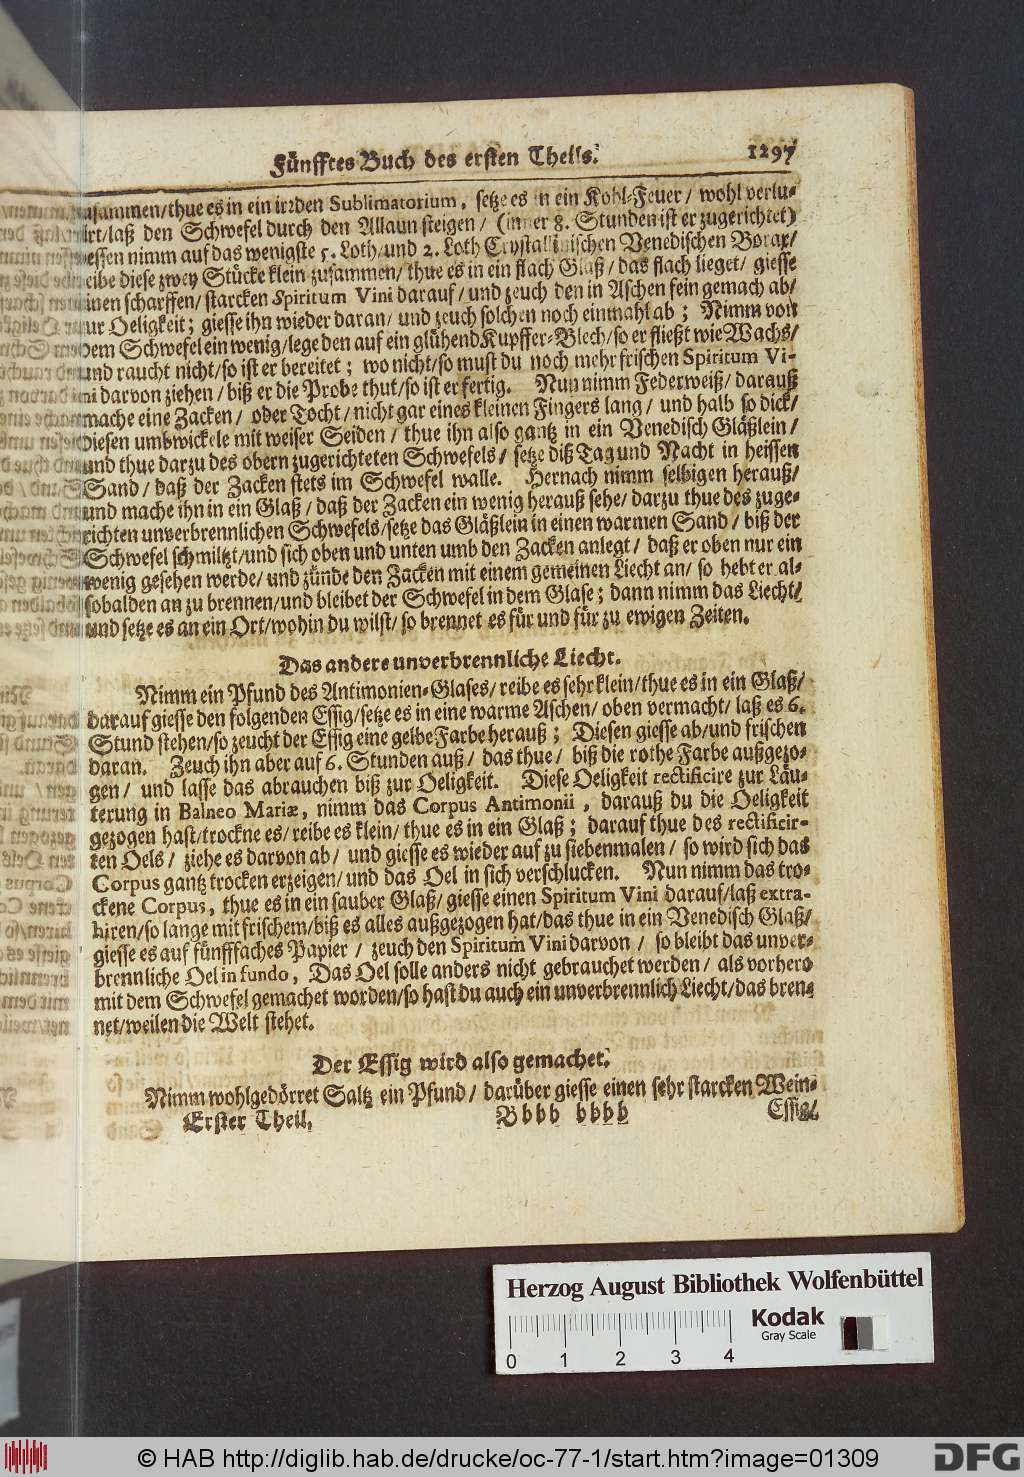 Fünfftes Buch des ersten Theils. 1297
zusammen/thue es in ein irrden Sublimatorium, setze es in ein Kohl-Feuer/ wohl verlu-
tirt/laß den Schwefel durch den Allaun steigen/ (immer 8. Stunden ist er zugerichtet)
dessen nimm auf das wenigste 5. Loth/und 2. Loth Crystallinischen Venedischen Borax/
reibe diese zwey Stücke klein zusammen/ thue es in ein flach Glaß/ das flach lieget/ giesse
einen scharffen/starcken Spiritum Vini darauf/ und zeuch den in Aschen fein gemach ab/
zur Oeligkeit; giesse ihn wieder daran/ und zeuch solchen noch einmahl ab; Nimm von
dem Schwefel ein wenig/lege den auf ein glühend Kupffer-Blech/so er fließt wie Wachs/
und raucht nicht/so ist er bereitet; wo nicht/so must du noch mehr frischen Spiritum Vi-
ni darvon ziehen/ biß er die Probe thut/so ist er fertig. Nun nimm Federweiß/ darauß
mache eine Zacken/ oder Tocht/ nicht gar eines kleinen Fingers lang/ und halb so dick/
diesen umbwickele mit weiser Seiden/ thue ihn also gantz in ein Venedisch Gläßlein/
und thue darzu des obern zugerichteten Schwefels/ setze diß Tag und Nacht in heissen
Sand/ daß der Zacken stets im Schwefel walle. Hernach nimm selbigen herauß/
und mache ihn in ein Glaß/ daß der Zacken ein wenig herauß sehe/ darzu thue des zuge-
richten unverbrennlichen Schwefels/setze das Gläßlein in einen warmen Sand/ biß der
Schwefel schmiltzt/und sich oben und unten umb den Zacken anlegt/ daß er oben nur ein
wenig gesehen werde/ und zünde den Zacken mit einem gemeinen Liecht an/ so hebt er al-
sobalden an zu brennen/und bleibet der Schwefel in dem Glase; dann nimm das Liecht/
und setze es an ein Ort/wohin du wilst/ so brennet es für und für zu ewigen Zeiten.
Das andere unverbrennliche Liecht.
Nimm ein Pfund des Antimonien-Glases/ reibe es sehr klein/thue es in ein Glaß/
darauf giesse den folgenden Essig/setze es in eine warme Aschen/ oben vermacht/ laß es 6.
Stund stehen/so zeucht der Essig eine gelbe Farbe herauß; Diesen giesse ab/und frischen
daran. Zeuch ihn aber auf 6. Stunden auß/ das thue/ biß die rothe Farbe außgezo-
gen/ und lasse das abrauchen biß zur Oeligkeit. Diese Oeligkeit rectificire zur Läu-
terung in Balneo Mariæ, nimm das Corpus Antimonii, darauß du die Oeligkeit
gezogen hast/trockne es/ reibe es klein/ thue es in ein Glaß; darauf thue des rectificir-
ten Oels/ ziehe es darvon ab/ und giesse es wieder auf zu siebenmalen/ so wird sich das
Corpus gantz trocken erzeigen/und das Oel in sich verschlucken. Nun nimm das tro-
ckene Corpus, thue es in ein sauber Glaß/ giesse einen Spiritum Vini darauf/laß extra-
hiren/so lange mit frischem/biß es alles außgezogen hat/das thue in ein Venedisch Glaß/
giesse es auf fünfffaches Papier/ zeuch den Spiritum Vini darvon/ so bleibt das unver-
brennliche Oel in fundo, Das Oel solle anders nicht gebrauchet werden/ als vorhero
mit dem Schwefel gemachet worden/so hast du auch ein unverbrennlich Liecht/das bren-
net/weilen die Welt stehet.
Der Essig wird also gemachet.
Nimm wohlgedörret Saltz ein Pfund/ darüber giesse einen sehr starcken Wein-
Erster Theil. Bbbb bbbb Essig/
Herzog August Bibliothek Wolfenbüttel
Kodak
Gray Scale
0 1 2 3 4
© HAB http://diglib.hab.de/drucke/oc-77-1/start.htm?image=01309
DFG